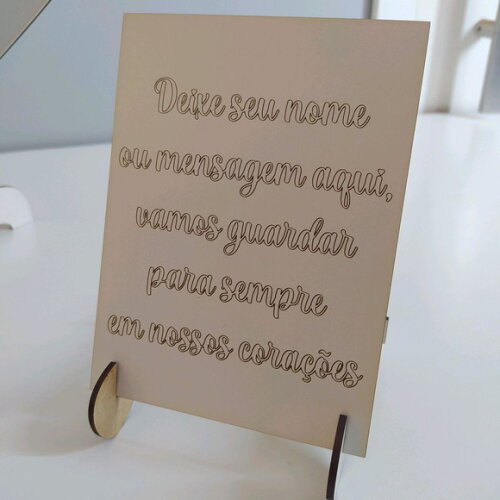 Deixe seu nome
ou mensagem aqui,
vamos guardar
para sempre
em nossos corações